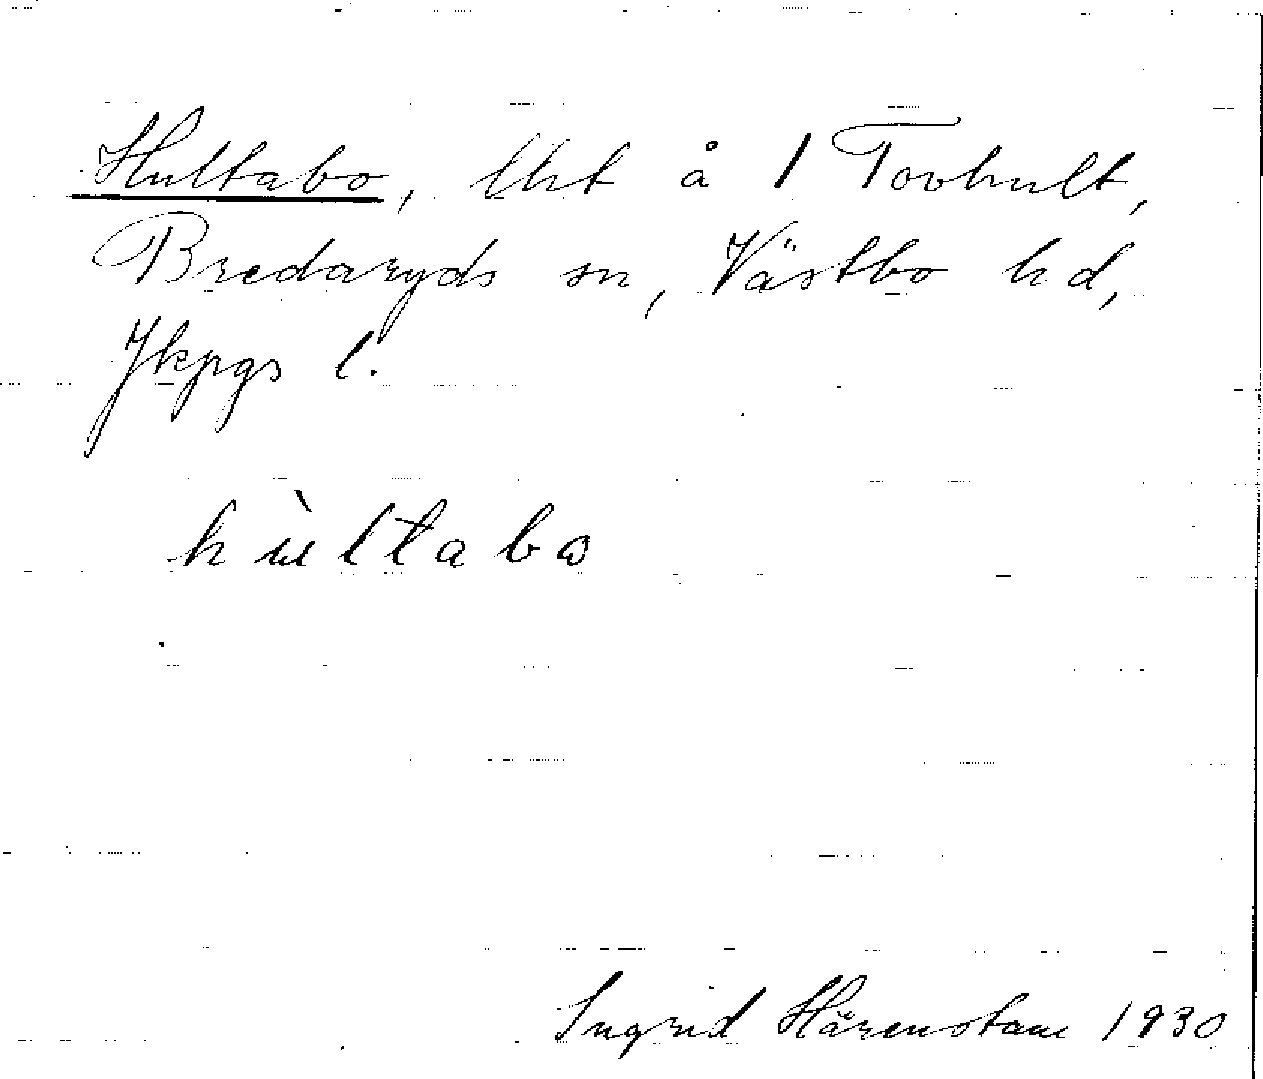 Hultabo, lht å 1 Tovhult,
Bredaryds sn, Västbo hd,
Jkpgs l.
hùltabo
Ingrid Härenstam 1930